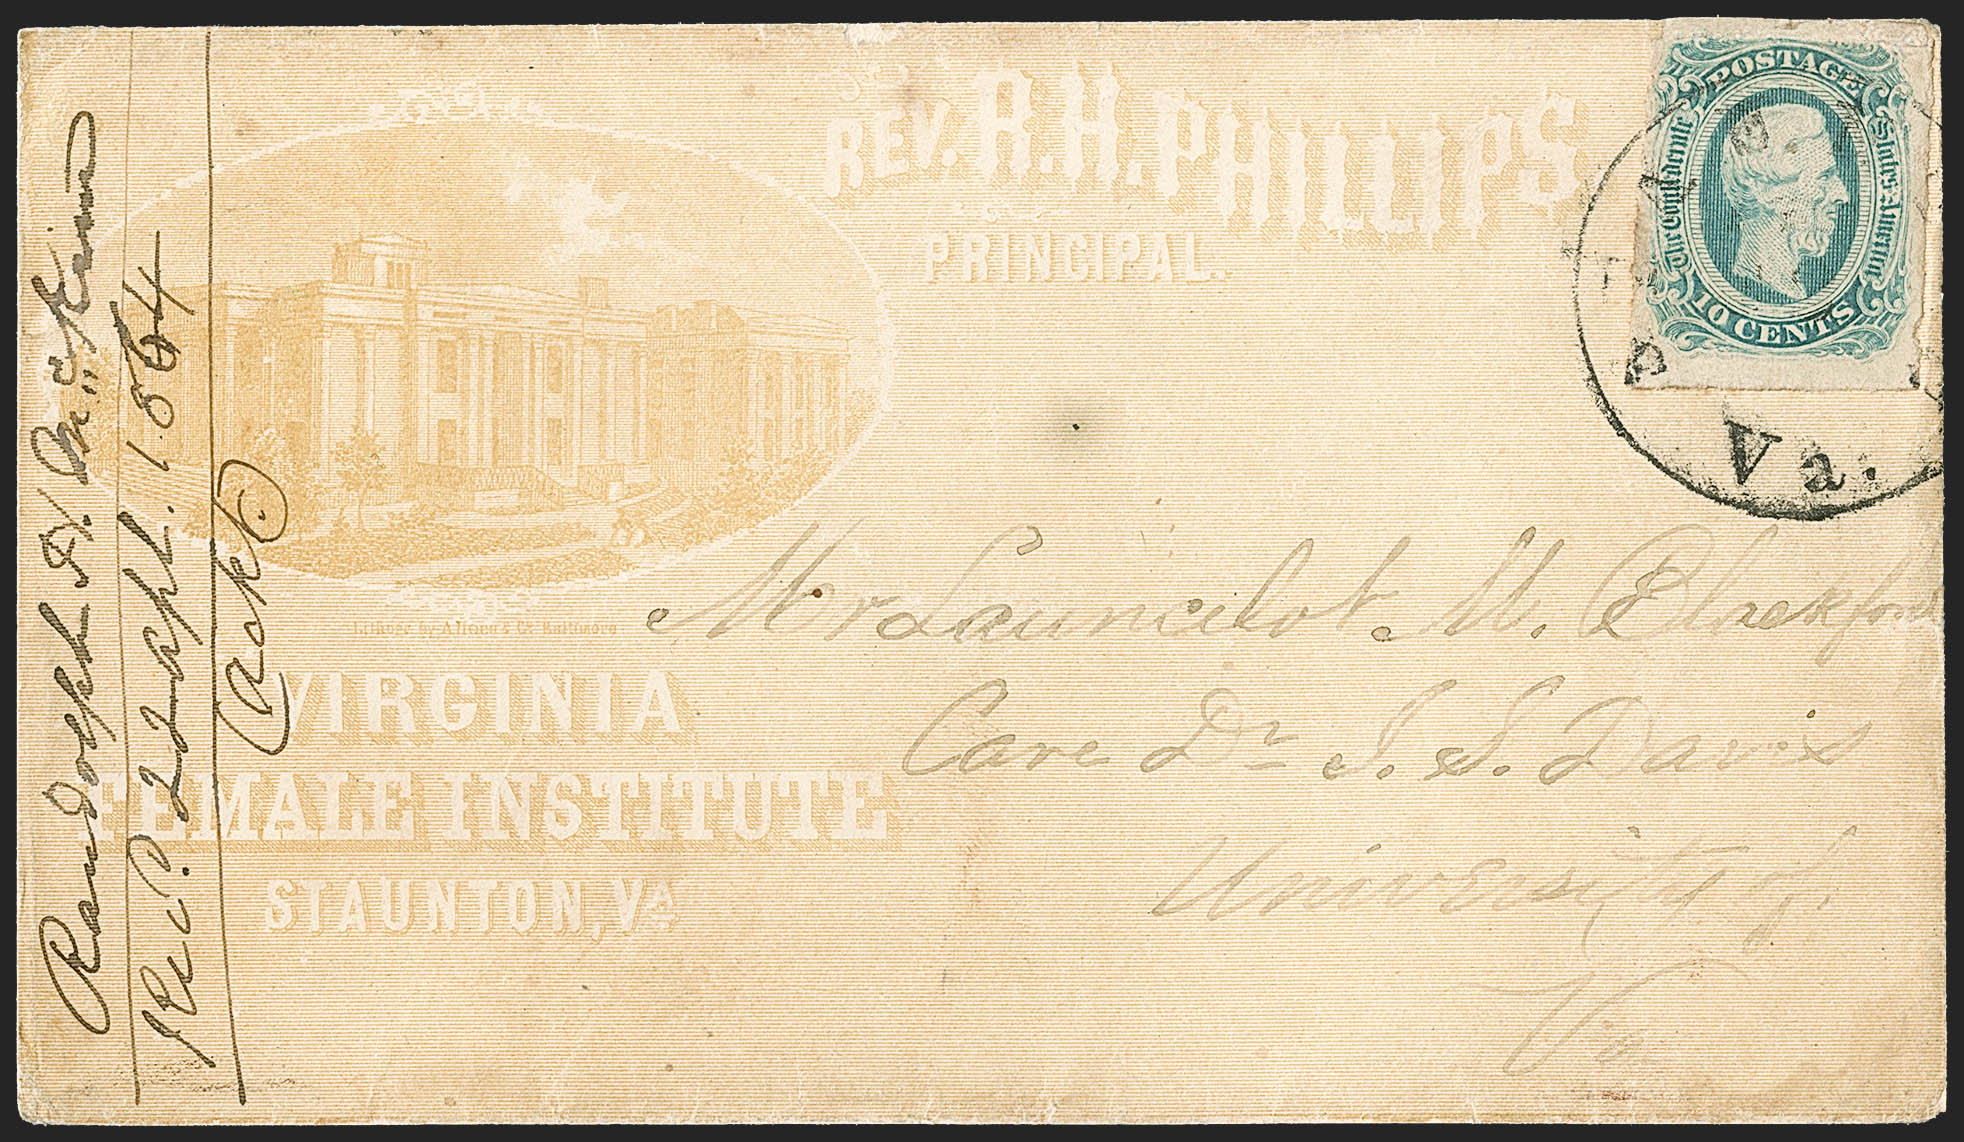 REV. R. H. PHILLIPS
PRINCIPAL.
POSTAGE
The Confederate
States of America
10 CENTS
Va.
Lithogr. by A. Hoen & Co. Baltimore
VIRGINIA
FEMALE INSTITUTE
STAUNTON, VA
Mr Launcelot M. Blackford
Care Dr J. S. Davis
University of
Va
Randolph H. McKim
Rec'd. 22d Apl. 1864
Ackd